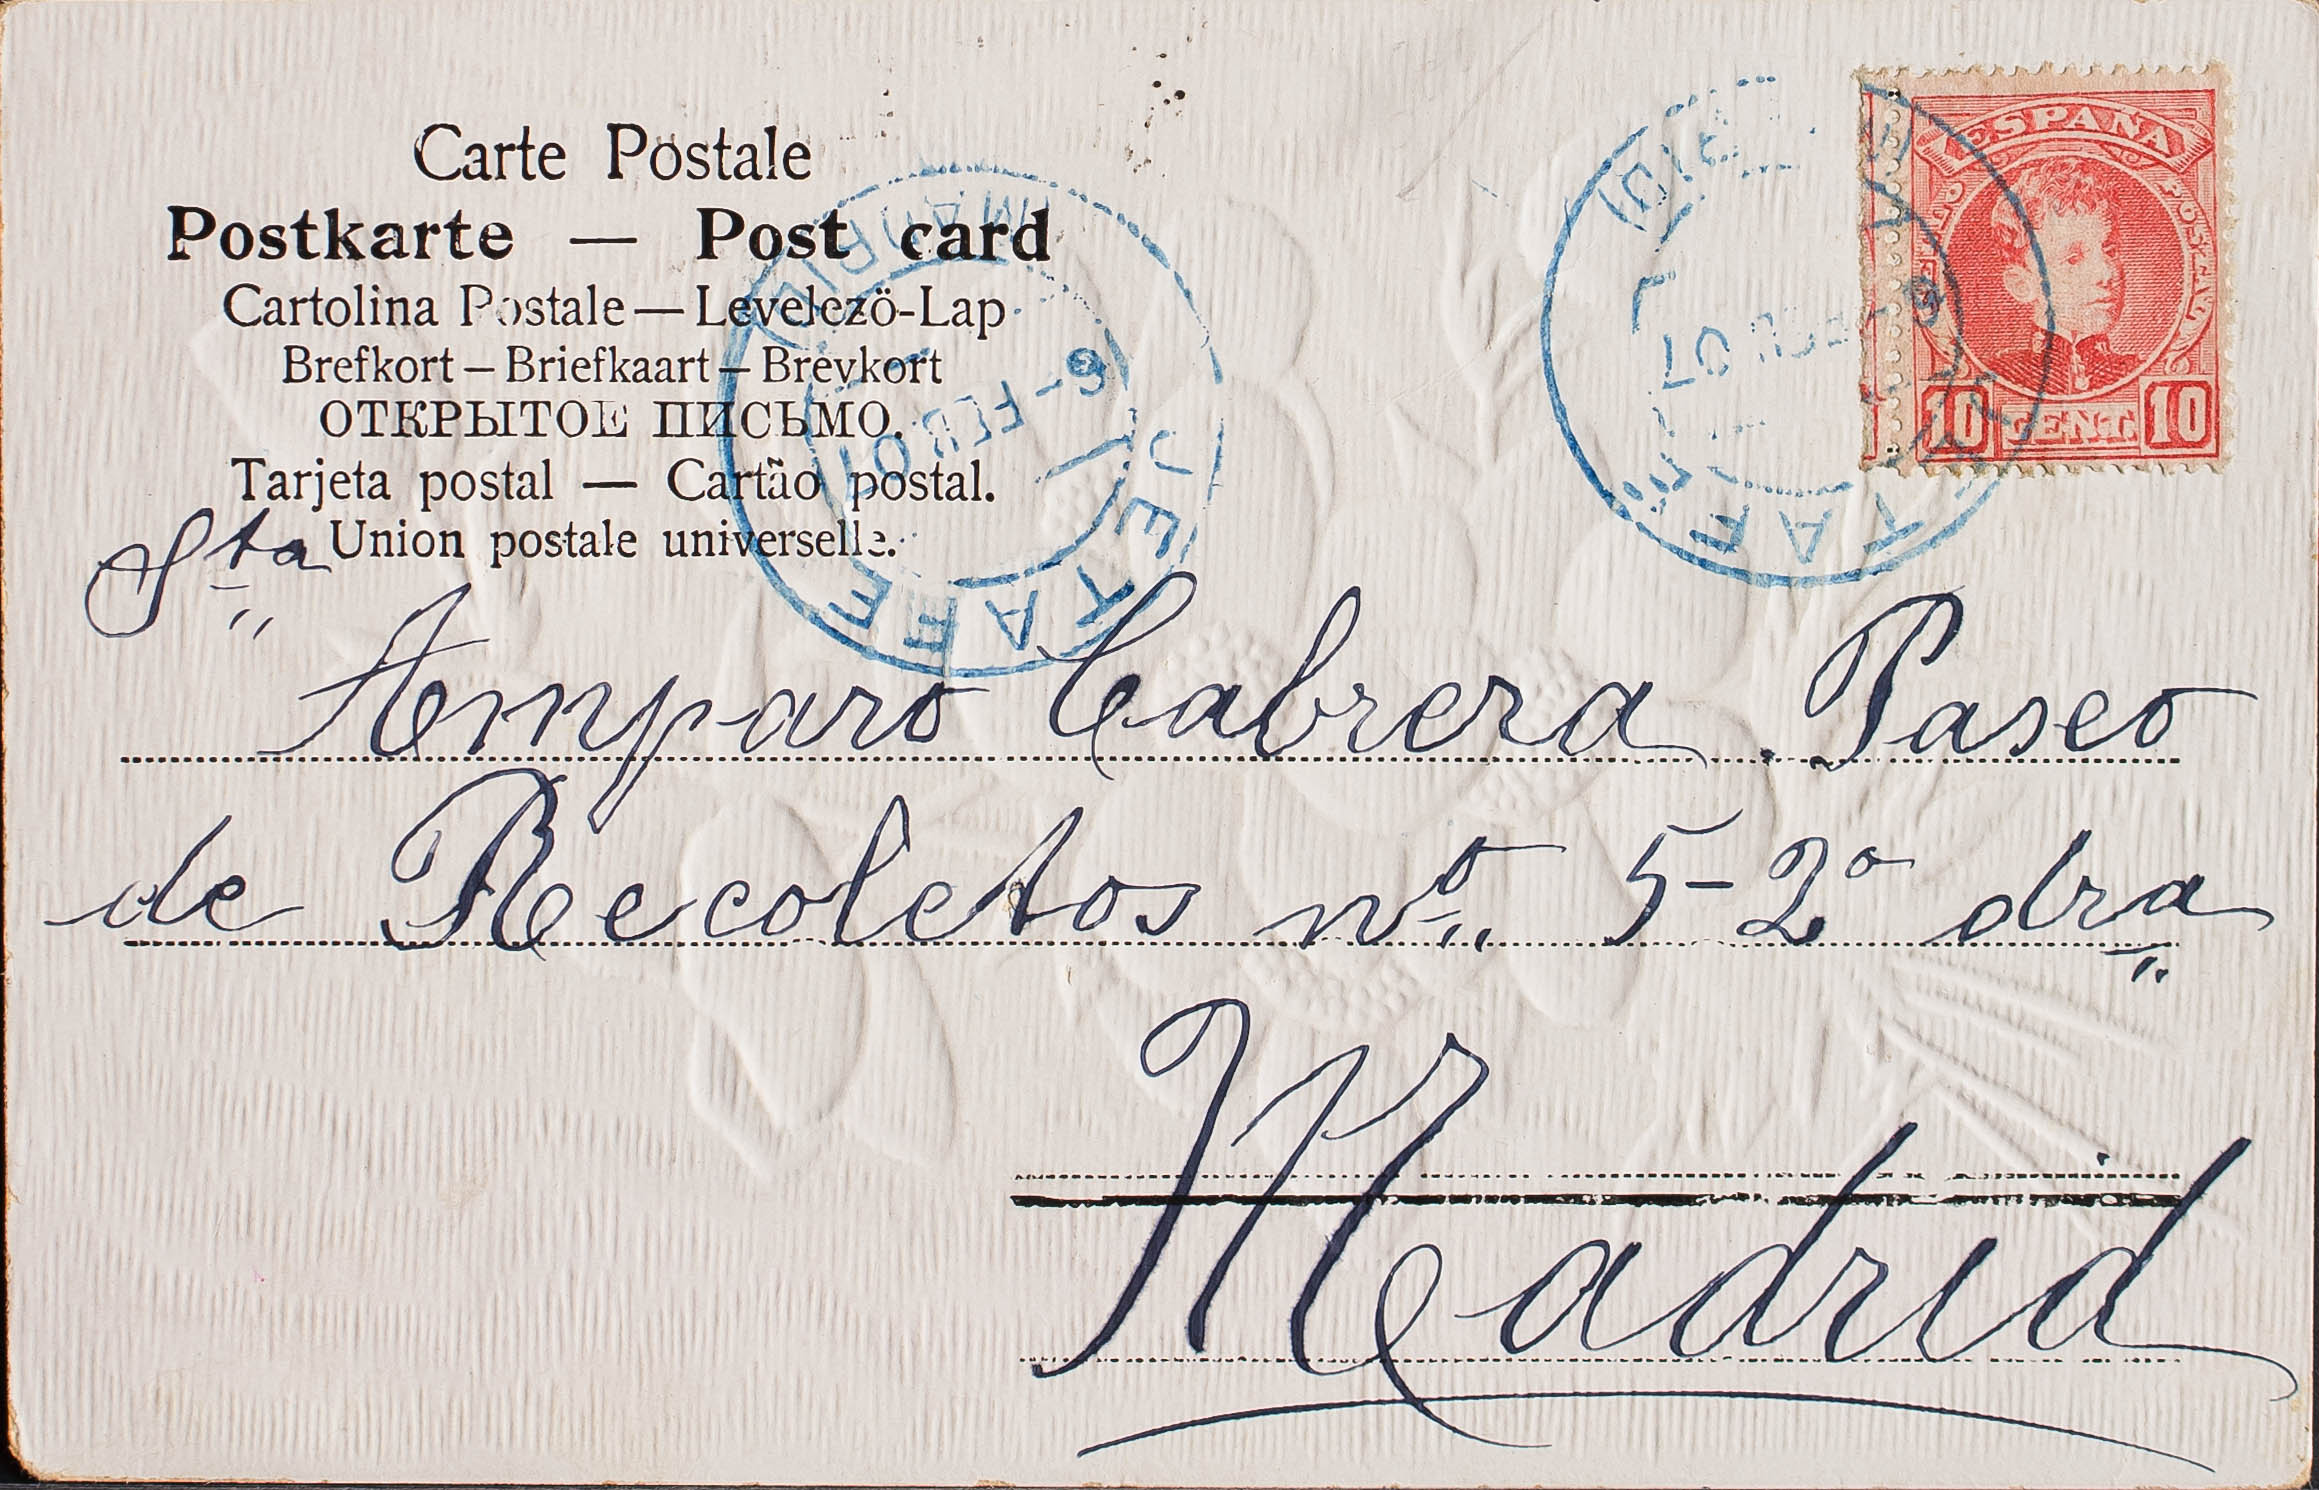 Carte Postale
Postkarte — Post card
Cartolina Postale — Levelező-Lap
Brefkort – Briefkaart – Brevkort
ОТКРЫТОЕ ПИСЬМО.
Tarjeta postal — Cartão postal.
Union postale universelle.
MADRID
9 - FEB 07
GETAFE
9 FEB 07
GETAFE
ESPAÑA
CORREO POSTAL
10 CENT. 10
Sta
Amparo Cabrera. Paseo
de Recoletos nº 5-2º dra
Madrid